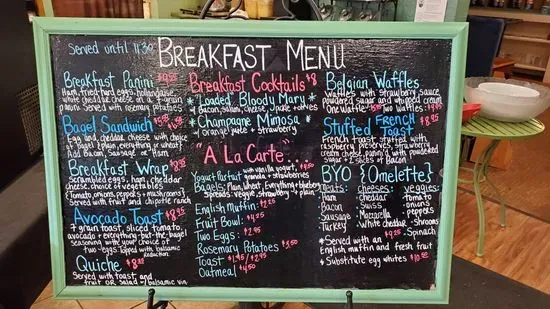 Served until 11:30
BREAKFAST MENU
Breakfast Panini $9.25
Ham, fried hard eggs, hollandaise,
white cheddar cheese on a 7-grain
panini. Served with rosemary potatoes
Bagel Sandwich
Egg and cheddar cheese with choice
of Bagel (plain, everything or wheat)
Add Bacon, Sausage or Ham
Breakfast Wrap
Scrambled eggs, ham, cheddar
cheese, choice of vegetables
(Tomato, onions, peppers & mushrooms)
Served with fruit and chipotle ranch
Avocado Toast $8.95
7 grain toast, sliced tomato,
avocado & everything-but-the bagel
seasoning with your choice of
two eggs. Topped with balsamic
reduction
Quiche
Served with toast, and
fruit OR salad w/ balsamic vin
Breakfast Cocktails $8
*"Loaded" Bloody Mary*
Bacon, shrimp, cheese, pickle + olives
*Champagne Mimosa*
orange juice + strawberry
"A La Carte"...
Yogurt Parfait with vanilla yogurt, granola + strawberries
Bagels: Plain, Wheat, Everything + blueberry
Spreads: veggie, strawberry + plain
English Muffin
Fruit Bowl
Two Eggs
Rosemary Potatoes $3.50
Toast $1.95/$2.95
Oatmeal $4.50
Belgian Waffles
Waffles with strawberry sauce,
powdered sugar and whipped cream
One Waffle Two Waffles
Stuffed FRENCH Toast
French toast stuffed with
raspberry preserves, strawberry
cream cheese, dusted with powdered
sugar + 2 slices of Bacon
BYO {Omelette}
meats: cheeses: veggies:
Ham Cheddar Tomato
Bacon Swiss onions
Sausage Mozzarella peppers
Turkey White cheddar -Shrooms
$9.25 -Spinach
*Served with an
English muffin and fresh fruit
*Substitute egg whites $10.50